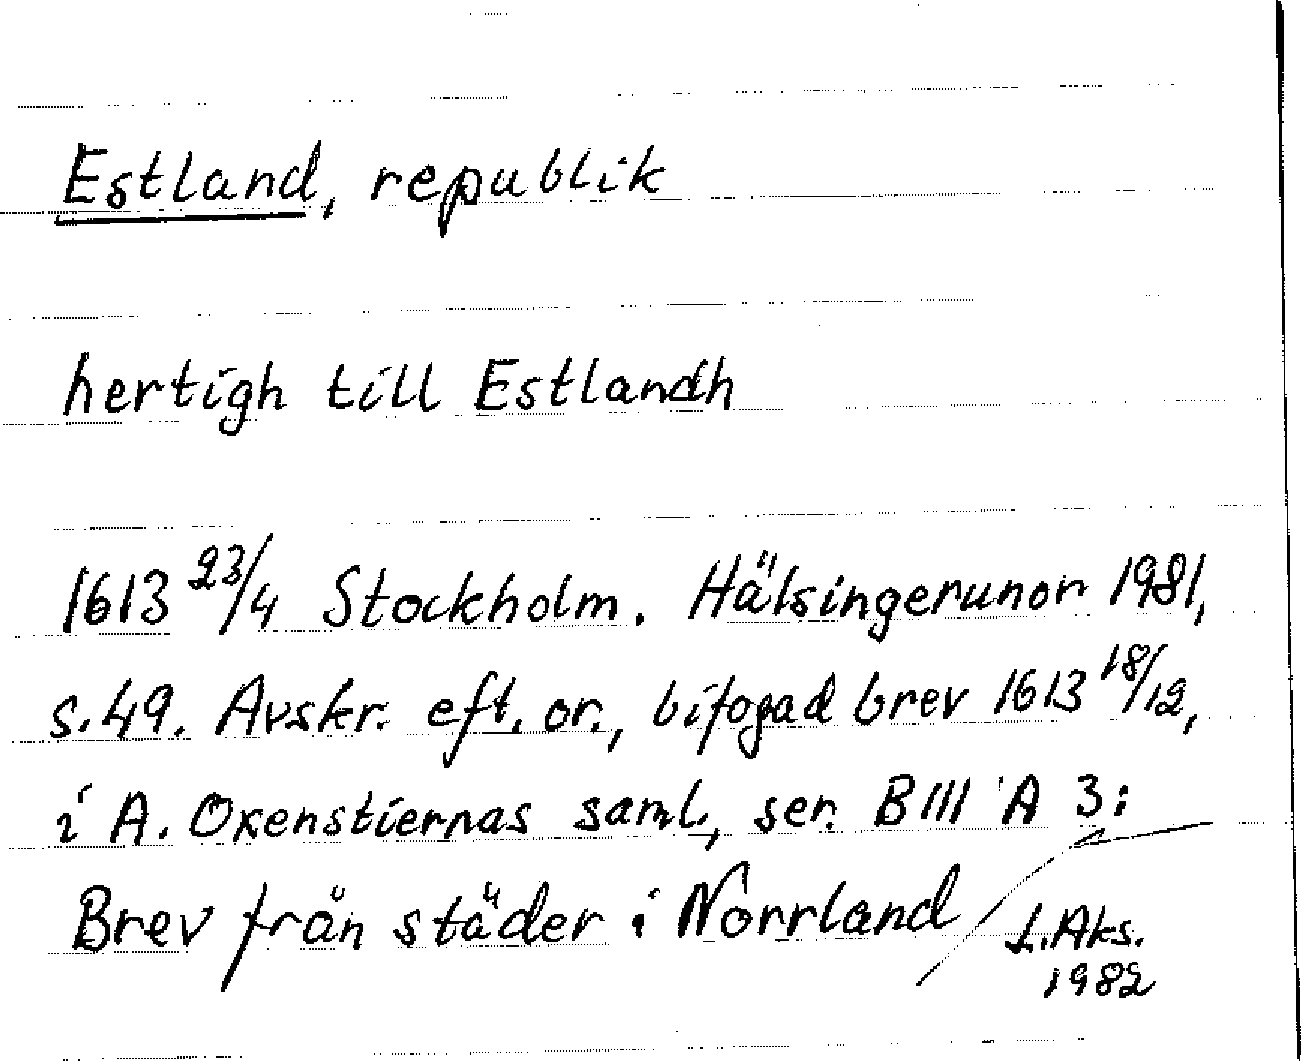 Estland, republik
hertigh till Estlandh
1613 23/4 Stockholm. Hälsingerunor 1981,
s.49. Avskr. eft. or., bifogad brev 1613 18/12,
i A. Oxenstiernas saml., ser. B III A 3:
Brev från städer i Norrland
L.Aks.
1982